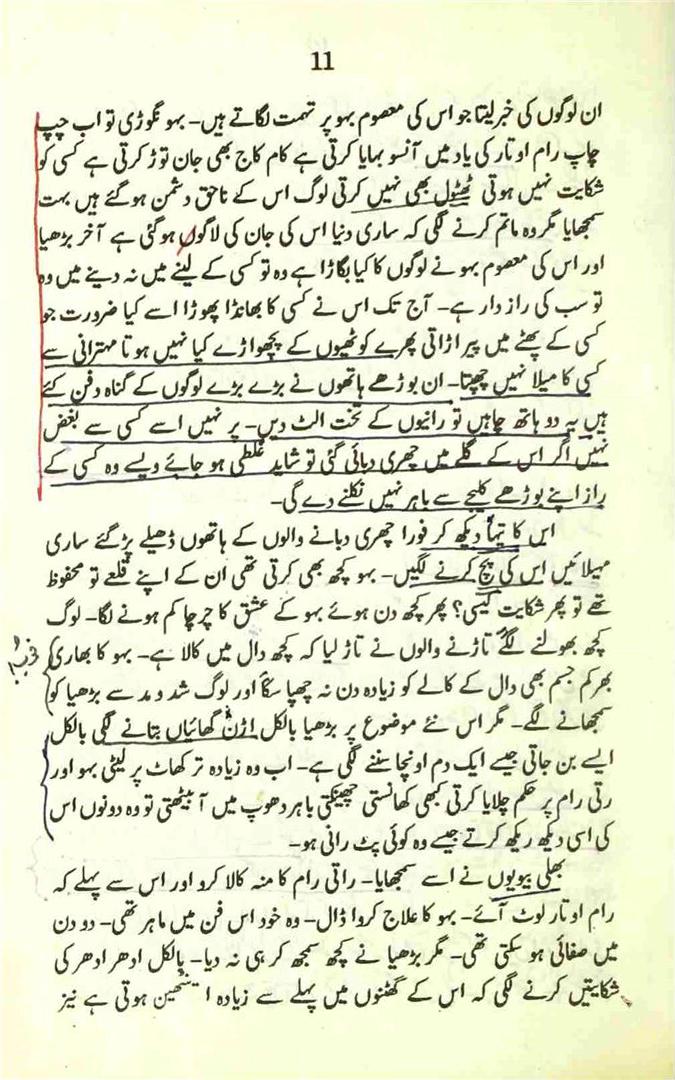 11
ان لوگوں کی خبر لیتا جو اس کی معصوم بہو پر تہمت لگاتے ہیں۔ بہو نگوڑی تو اب چپ
چاپ رام اوتار کی یاد میں آنسو بہایا کرتی ہے کام کاج بھی جان توڑ کرتی ہے کسی کو
شکایت نہیں ہوتی ٹھٹول بھی نہیں کرتی لوگ اس کے ناحق دشمن ہو گئے ہیں بہت
سمجھایا مگر وہ ماتم کرنے لگی کہ ساری دنیا اس کی جان کی لاگوں ہو گئی ہے آخر بڑھیا
اور اس کی معصوم بہو نے لوگوں کا کیا بگاڑا ہے وہ تو کسی کے لینے میں نہ دینے میں وہ
تو سب کی راز دار ہے۔ آج تک اس نے کسی کا بھانڈا پھوڑا اسے کیا ضرورت جو
کسی کے پھٹے میں پیر اڑاتی پھرے کوٹھیوں کے پچھواڑے کیا نہیں ہوتا مہترانی سے
کسی کا میلا نہیں چھپتا۔ ان بوڑھے ہاتھوں نے بڑے بڑے لوگوں کے گناہ دفن کئے
ہیں یہ دو ہاتھ چاہیں تو رانیوں کے تخت الٹ دیں۔ پر نہیں اسے کسی سے بغض
نہیں اگر اس کے گلے میں چھری دبائی گئی تو شاید غلطی ہو جائے ویسے وہ کسی کے
راز اپنے بوڑھے کلیجے سے باہر نہیں نکلنے دے گی۔
اس کا تیہا دیکھ کر فورا چھری دبانے والوں کے ہاتھوں ڈھیلے پڑ گئے ساری
مہیلائیں اس کی پچ کرنے لگیں۔ بہو کچھ بھی کرتی تھی ان کے اپنے قلعے تو محفوظ
تھے تو پھر شکایت کیسی؟ پھر کچھ دن ہوئے بہو کے عشق کا چرچا کم ہونے لگا۔ لوگ
کچھ بھولنے لگے تاڑنے والوں نے تاڑ لیا کہ کچھ دال میں کالا ہے۔ بہو کا بھاری
بھرکم جسم بھی دال کے کالے کو زیادہ دن نہ چھپا سکا اور لوگ شد و مد سے بڑھیا کو
سمجھانے لگے۔ مگر اس نئے موضوع پر بڑھیا بالکل اڑن گھائیاں بتانے لگی بالکل
ایسے بن جاتی جیسے ایک دم اونچا سننے لگی ہے۔ اب وہ زیادہ تر کھاٹ پر لیٹی بہو اور
رتی رام پر حکم چلایا کرتی کبھی کھانستی چھینکتی باہر دھوپ میں آ بیٹھتی تو وہ دونوں اس
کی اسی دیکھ ریکھ کرتے جیسے وہ کوئی پٹ رانی ہو۔
بھلی بیویوں نے اسے سمجھایا۔ راتی رام کا منہ کالا کرو اور اس سے پہلے کہ
رام اوتار لوٹ آئے۔ بہو کا علاج کروا ڈال۔ وہ خود اس فن میں ماہر تھی۔ دو دن
میں صفائی ہو سکتی تھی۔ مگر بڑھیا نے کچھ سمجھ کر ہی نہ دیا۔ بالکل ادھر ادھر کی
شکایتیں کرنے لگی کہ اس کے گھٹنوں میں پہلے سے زیادہ اینٹھین ہوتی ہے نیز